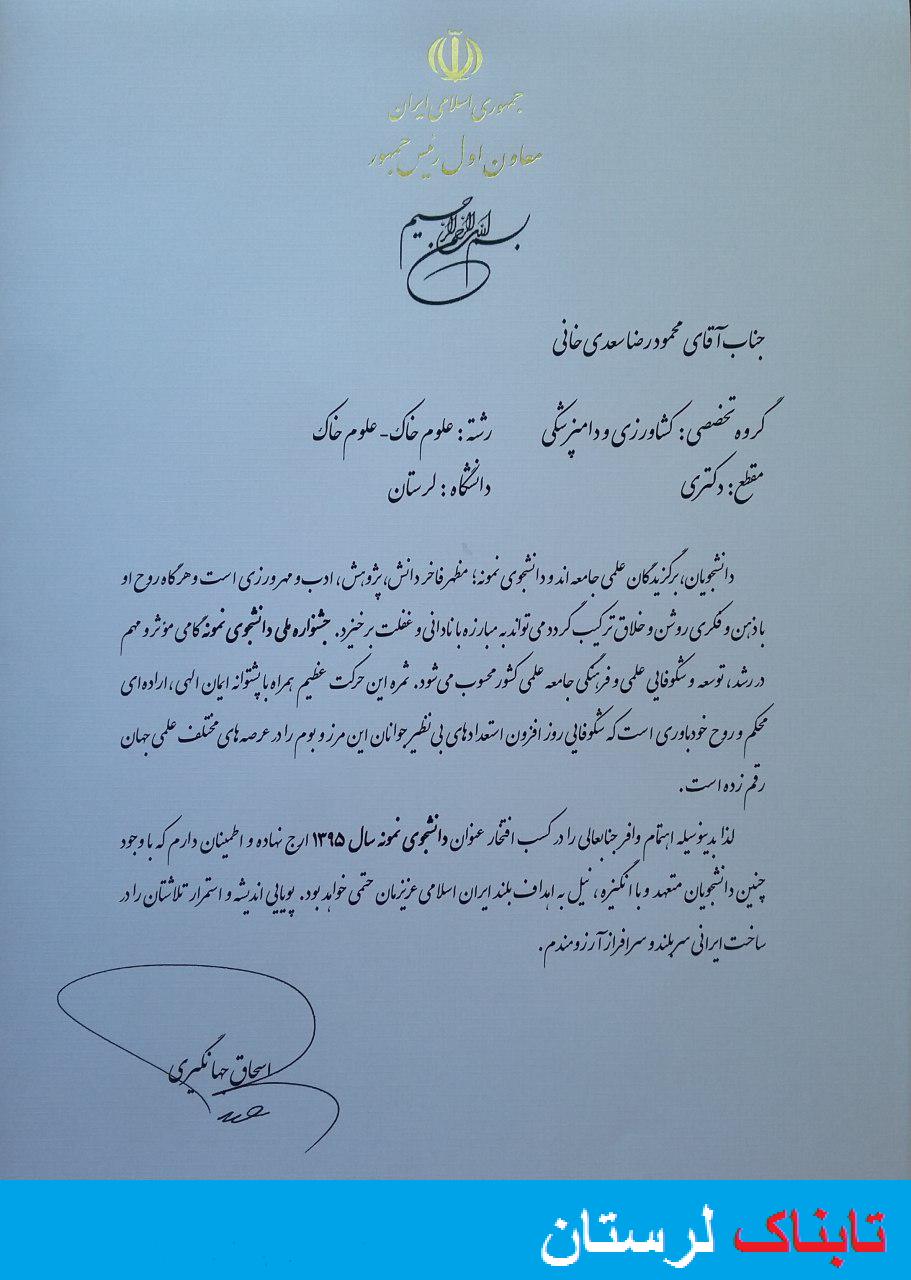 جمهوری اسلامی ایران
معاون اول رئیس جمهور
بسم الله الرحمن الرحیم
جناب آقای محمودرضا سعدی خانی
گروه تخصصی: کشاورزی و دامپزشکی رشته: علوم خاک- علوم خاک
مقطع: دکتری دانشگاه: لرستان
دانشجویان، برگزیدگان علمی جامعه اند و دانشجوی نمونه؛ مظهر فاخر دانش، پژوهش، ادب و مهرورزی است و هرگاه روح او
با ذهن و فکری روشن و خلاق ترکیب گردد می تواند به مبارزه با نادانی و غفلت برخیزد. جشنواره ملی دانشجوی نمونه گامی مؤثر و مهم
در رشد، توسعه و شکوفایی علمی و فرهنگی جامعه علمی کشور محسوب می شود. ثمره این حرکت عظیم همراه با پشتوانه ایمان الهی، اراده ای
محکم و روح خودباوری است که شکوفایی روز افزون استعدادهای بی نظیر جوانان این مرز و بوم را در عرصه های مختلف علمی جهان
رقم زده است.
لذا بدینوسیله اهتمام وافر جنابعالی را در کسب افتخار عنوان دانشجوی نمونه سال ۱۳۹۵ ارج نهاده و اطمینان دارم که با وجود
چنین دانشجویان متعهد و با انگیزه، نیل به اهداف بلند ایران اسلامی عزیزمان حتمی خواهد بود. پویایی اندیشه و استمرار تلاشتان را در
ساخت ایرانی سربلند و سرافراز آرزومندم.
اسحاق جهانگیری
تابناک لرستان